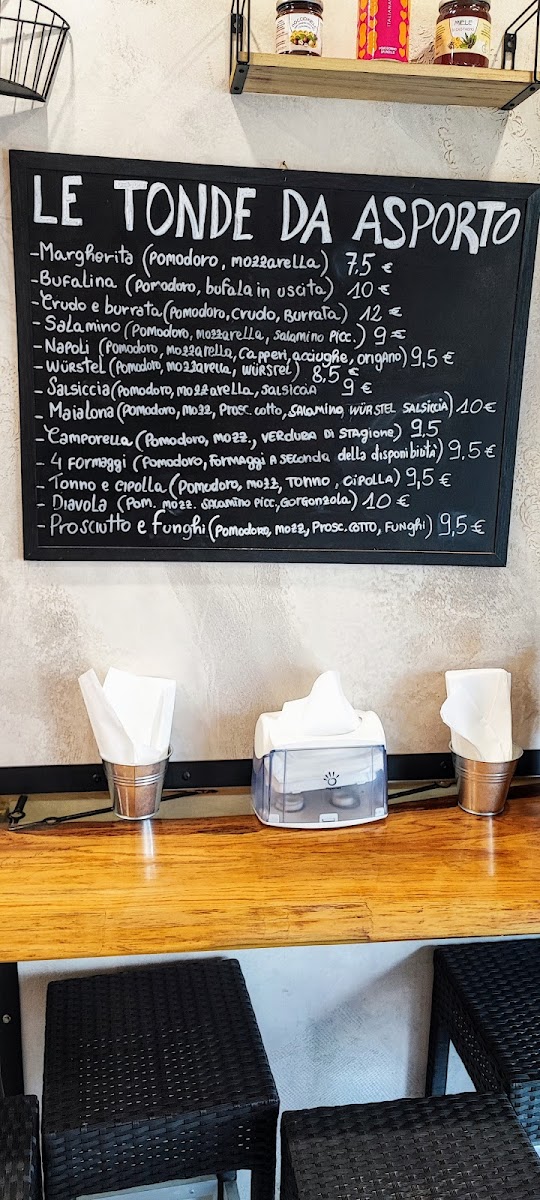 MIELE
LE TONDE DA ASPORTO
-Margherita (Pomodoro, mozzarella) 7,5 €
-Bufalina (Pomodoro, bufala in uscita) 10 €
-Crudo e burrata (Pomodoro, Crudo, Burrata) 12 €
-Salamino (Pomodoro, mozzarella, Salamino Picc.) 9 €
-Napoli (Pomodoro, mozzarella, Capperi, acciughe, origano) 9,5 €
-Würstel (Pomodoro, mozzarella, WÜRSTEL) 8,5 €
-Salsiccia (Pomodoro, mozzarella, SALSICCIA 9 €
-Maialona (Pomodoro, mozz, Prosc. cotto, SALAMINO, WÜRSTEL SALSICCIA) 10 €
-Camporella (Pomodoro, moz., VERDURA DI STAGIONE) 9,5
- 4 Formaggi (Pomodoro, Formaggi A SECONDA della disponibilità) 9,5 €
- Tonno e cipolla (Pomodoro, mozz, TONNO, CIPOLLA) 9,5 €
- Diavola (Pom, mozz. SALAMINO PICC., GORGONZOLA) 10 €
- Prosciutto e Funghi (Pomodoro, Mozz, PROSC. COTTO, FUNGHI) 9,5 €